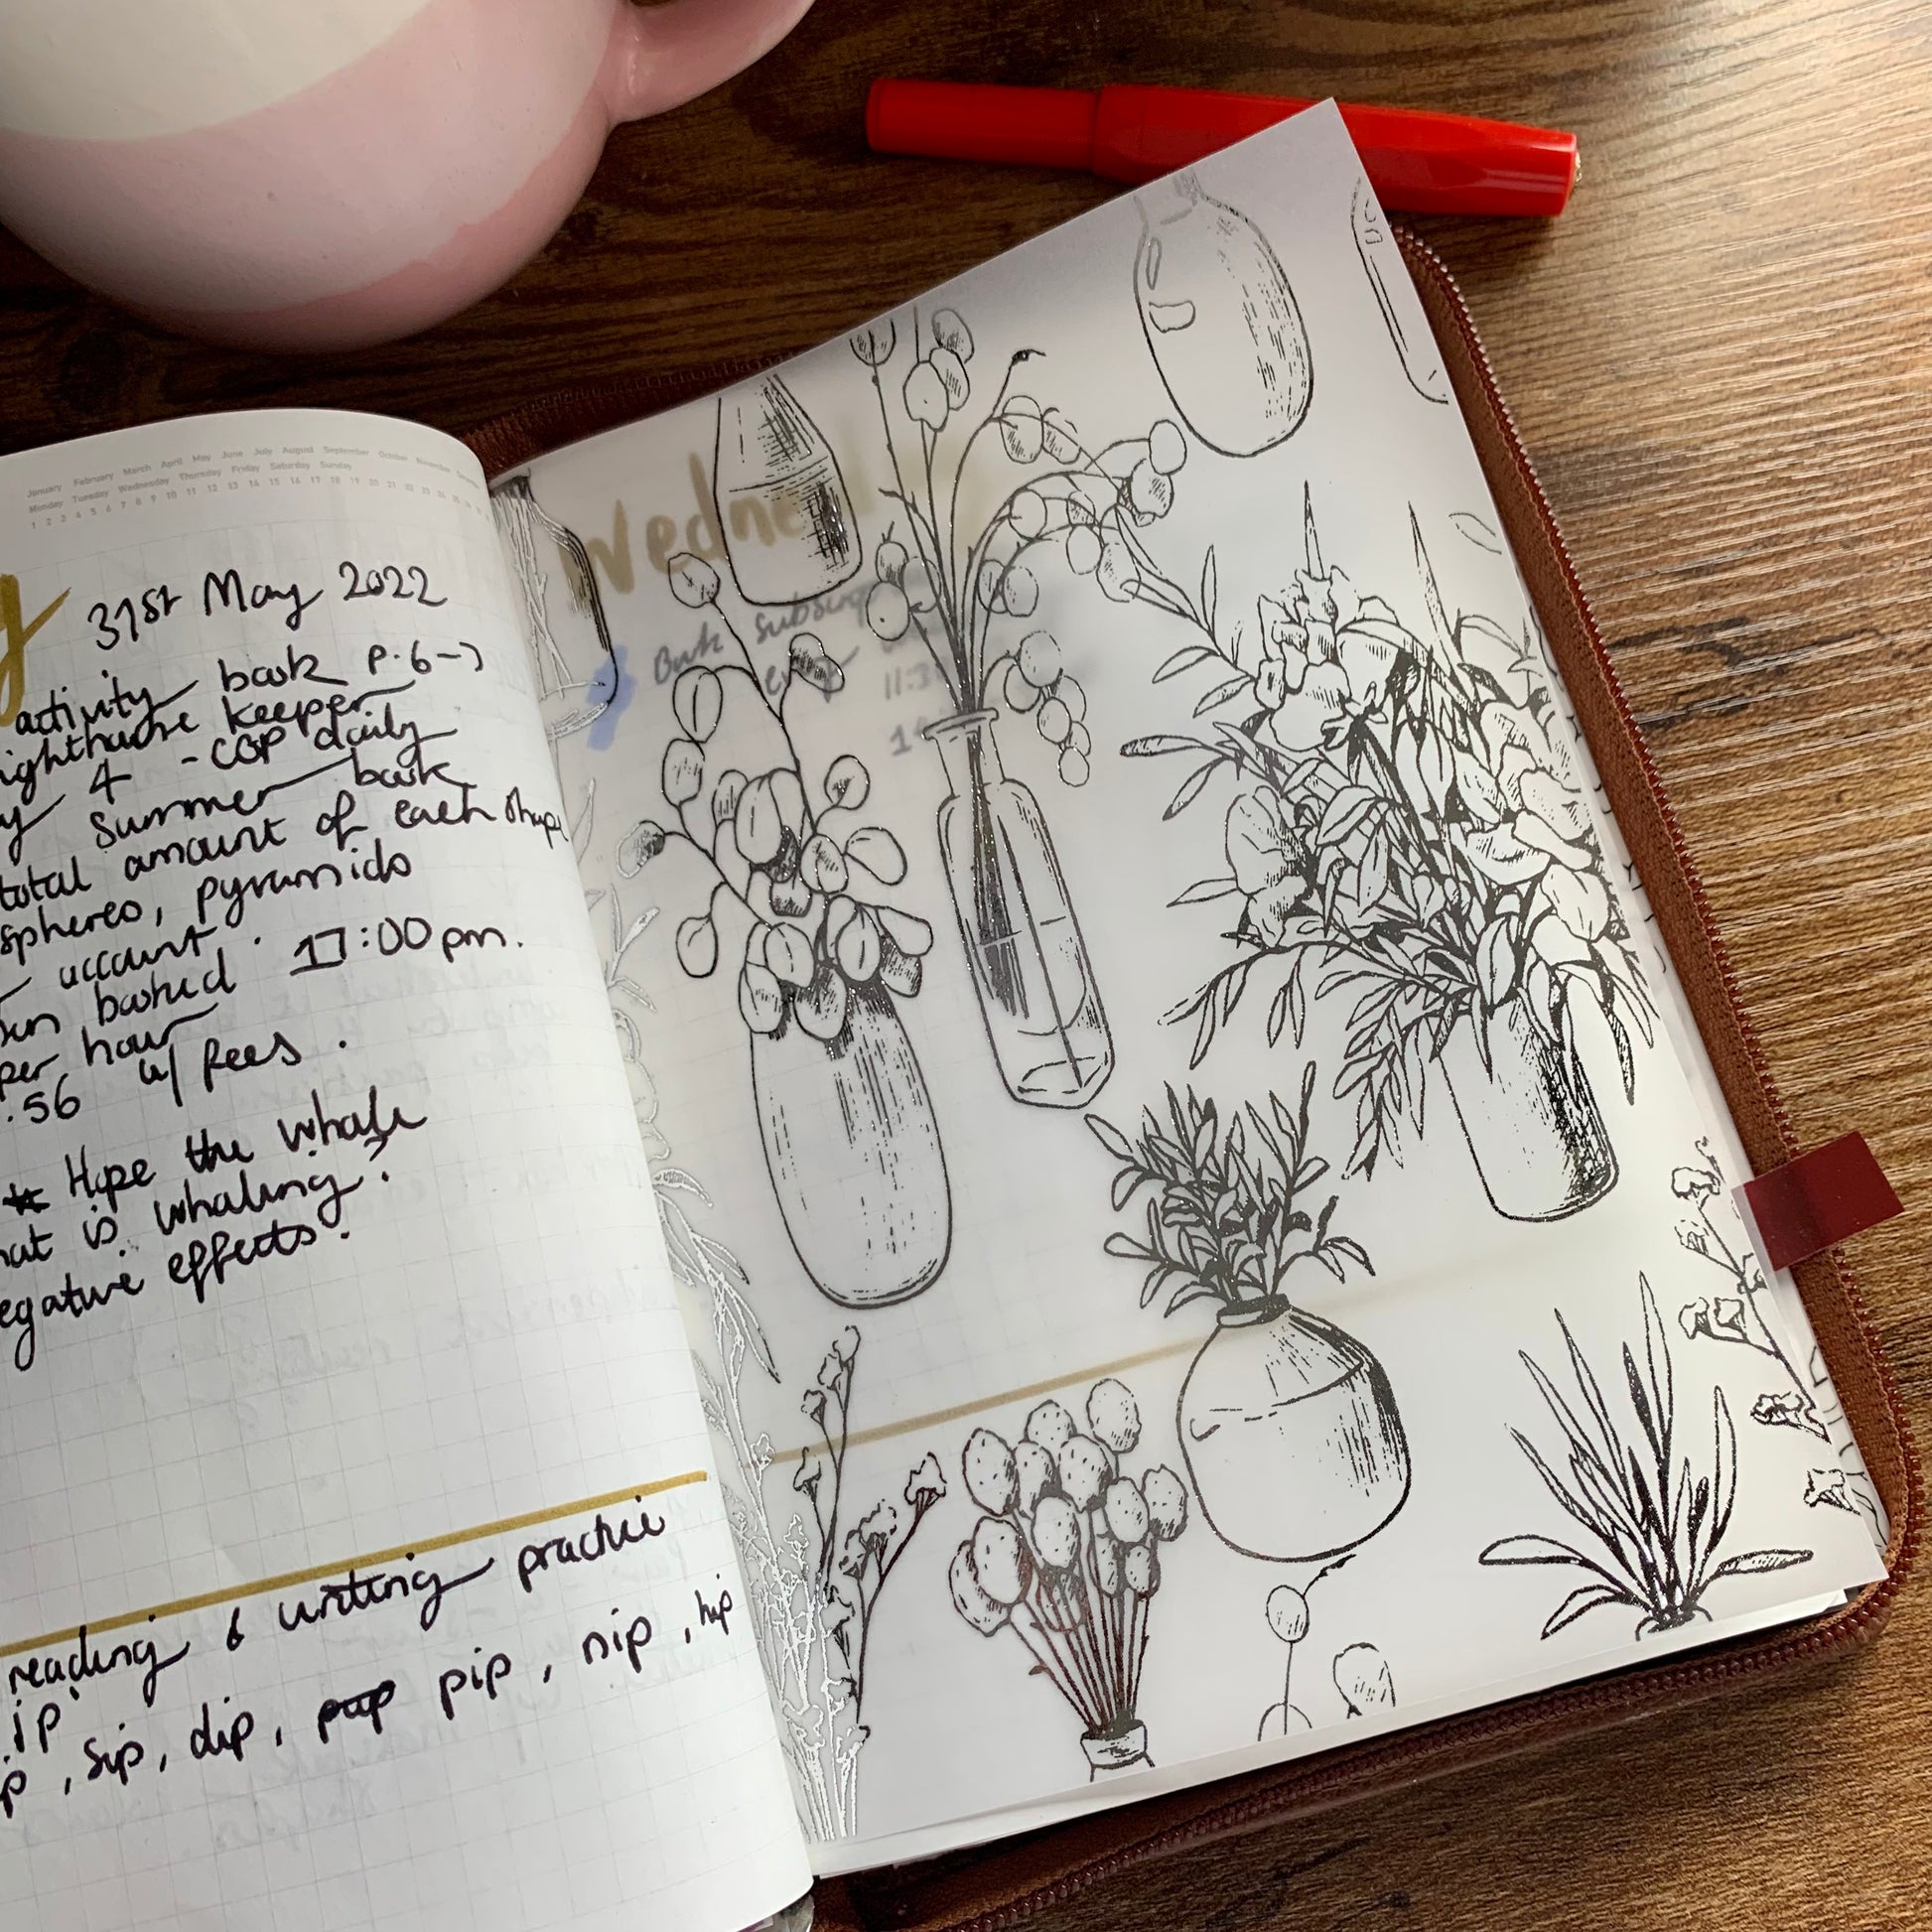 January February March April May June July August September October November
Monday Tuesday Wednesday Thursday Friday Saturday Sunday
1 2 3 4 5 6 7 8 9 10 11 12 13 14 15 16 17 18 19 20 21 22 23 24 25
y 31st May 2022
activity book p.6 →
ighthouse keeper
y 4 - COP daily
Summer book
total amount of each shape
spheres, pyramids
account
booked 17:00pm.
per hour
.56 w/ fees.
Hope the whale
hat is whaling?
egative effects?
reading & writing practice
ip'
ip, sip, dip, pip, nip, hip
Wednesd
Book subscrip
11:3